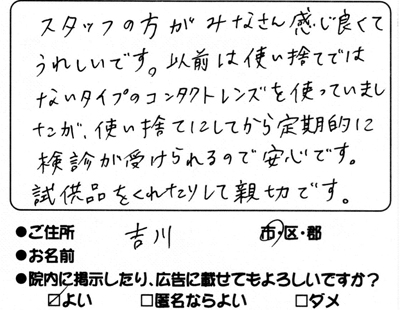 スタッフの方がみなさん感じ良くて
うれしいです。以前は使い捨てでは
ないタイプのコンタクトレンズを使っていまし
たが、使い捨てにしてから定期的に
検診が受けられるので安心です。
試供品をくれたりして親切です。
●ご住所 吉川 市・区・郡
●お名前
●院内に掲示したり、広告に載せてもよろしいですか？
☑よい □匿名ならよい □ダメ